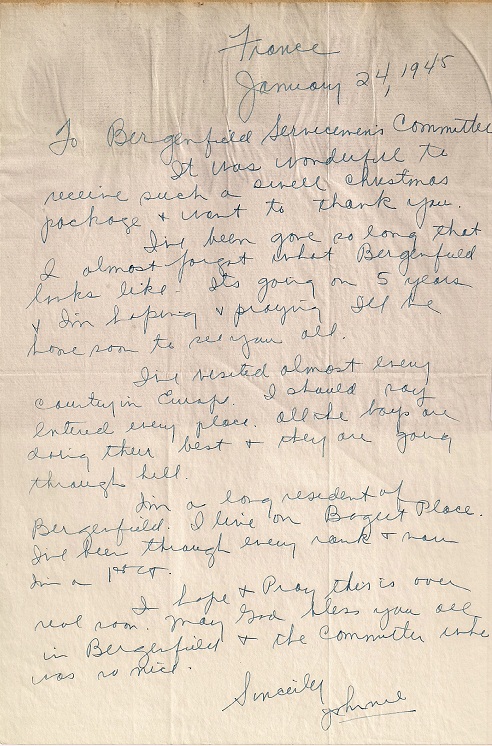 France
January 24, 1945
To Bergenfield Servicemen's Committee
It was wonderful to
receive such a swell christmas
package & want to thank you.
I've been gone so long that
I almost forgot what Bergenfield
looks like. Its going on 5 years
& I'm hoping & praying I'll be
home soon to see you all.
I've visited almost every
country in Europe. I should say
entered every place. All the boys are
doing their best & they are going
through hell.
I'm a long resident of
Bergenfield. I live on Place.
I've been through every rank & now
I'm a 1st
I hope & Pray this is over
real soon. May God bless you all
in Bergenfield & the Committee who
was so nice.
Sincerely
Johnnie